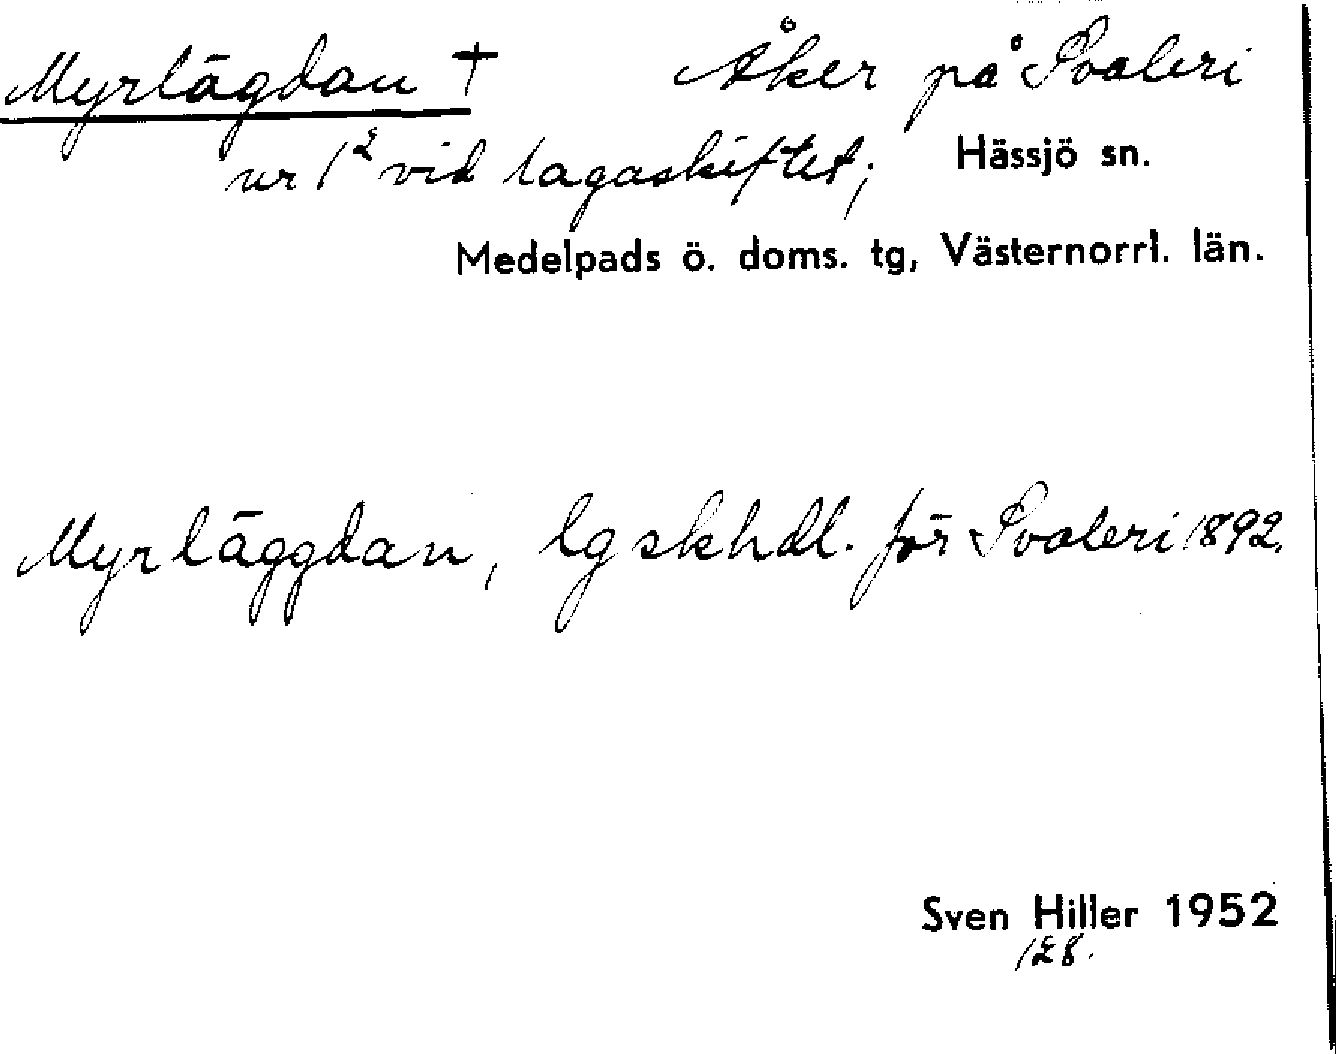 Myrlägdan † Åker på Svaleri
nr 1² vid lagaskiftet; Hässjö sn.
Medelpads ö. doms. tg, Västernorrl. län.
Myrläggdan, lgskhdl. för Svaleri 1892.
Sven Hiller 1952
128.